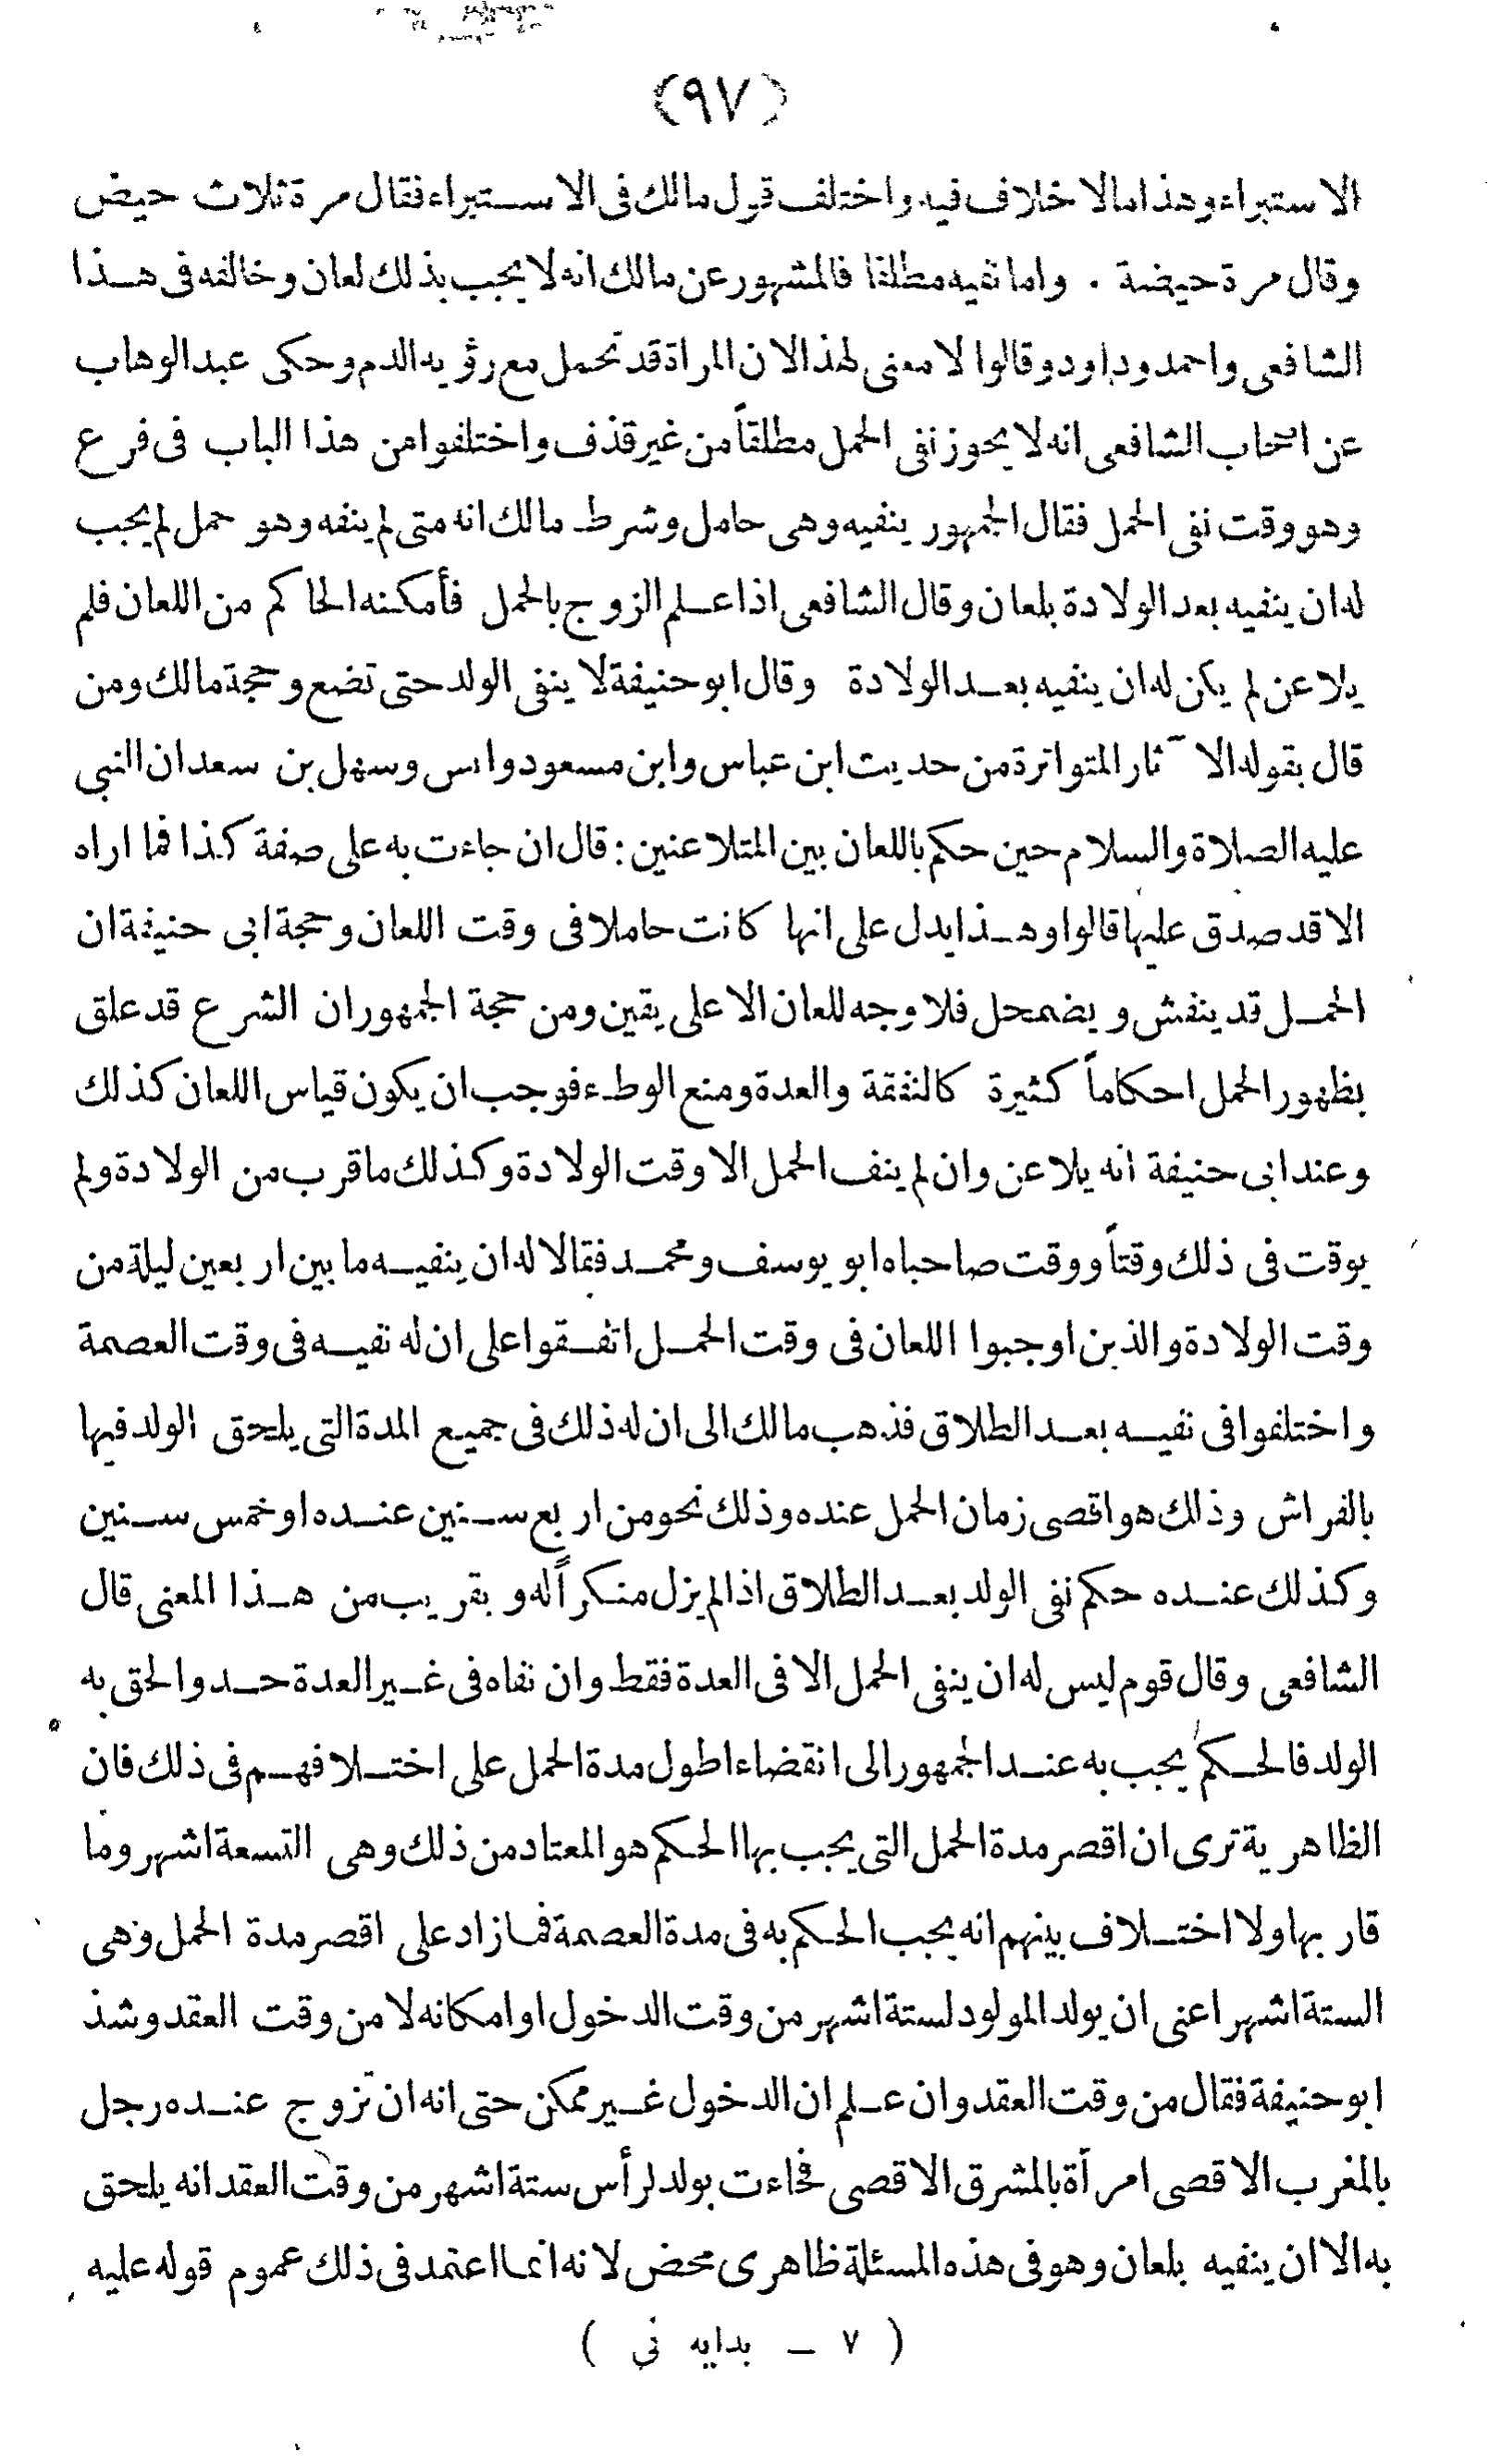 (٩٧)
الاستبراء وهذا مالا خلاف فيه واختلف قول مالك فى الاستبراء فقال مرة ثلاث حيض
وقال مرة حيضة . واما نفيه مطلقا فالمشهور عن مالك انه لا يجب بذلك لعان وخالفه فى هذا
الشافعى واحمد وداود وقالوا لا معنى لهذا لان المراة قد تحمل مع رؤية الدم وحكى عبد الوهاب
عن اصحاب الشافعى انه لا يجوز نفى الحمل مطلقاً من غير قذف واختلفوا من هذا الباب فى فرع
وهو وقت نفى الحمل فقال الجمهور ينفيه وهى حامل وشرط مالك انه متى لم ينفه وهو حمل لم يجب
له ان ينفيه بعد الولادة بلعان وقال الشافعى اذا علم الزوج بالحمل فأمكنه الحاكم من اللعان فلم
يلاعن لم يكن له ان ينفيه بعد الولادة وقال ابو حنيفة لا ينفى الولد حتى تضع وحجة مالك ومن
قال بقوله الآثار المتواترة من حديث ابن عباس وابن مسعود وانس وسهل بن سعد ان النبى
عليه الصلاة والسلام حين حكم باللعان بين المتلاعنين : قال ان جاءت به على صفة كذا فما اراه
الا قد صدق عليها قالوا وهذا يدل على انها كانت حاملا فى وقت اللعان وحجة ابى حنيفة ان
الحمل قد ينفش ويضمحل فلا وجه للعان الا على يقين ومن حجة الجمهور ان الشرع قد علق
بظهور الحمل احكاماً كثيرة كالنفقة والعدة ومنع الوطء فوجب ان يكون قياس اللعان كذلك
وعند ابى حنيفة انه يلاعن وان لم ينف الحمل الا وقت الولادة وكذلك ما قرب من الولادة ولم
يوقت فى ذلك وقتاً ووقت صاحباه ابو يوسف ومحمد فقالا له ان ينفيه ما بين اربعين ليلة من
وقت الولادة والذين اوجبوا اللعان فى وقت الحمل اتفقوا على ان له نفيه فى وقت العصمة
واختلفوا فى نفيه بعد الطلاق فذهب مالك الى ان له ذلك فى جميع المدة التى يلحق الولد فيها
بالفراش وذلك هو اقصى زمان الحمل عنده وذلك نحو من اربع سنين عنده او خمس سنين
وكذلك عنده حكم نفى الولد بعد الطلاق اذا لم يزل منكراً له وبقريب من هذا المعنى قال
الشافعى وقال قوم ليس له ان ينفى الحمل الا فى العدة فقط وان نفاه فى غير العدة حد والحق به
الولد فالحكم يجب به عند الجمهور الى انقضاء اطول مدة الحمل على اختلافهم فى ذلك فان
الظاهرية ترى ان اقصر مدة الحمل التى يجب بها الحكم هو المعتاد من ذلك وهى التسعة اشهر وما
قاربها ولا اختلاف بينهم انه يجب الحكم به فى مدة العصمة فما زاد على اقصر مدة الحمل وهى
الستة اشهر اعنى ان يولد المولود لستة اشهر من وقت الدخول او امكانه لا من وقت العقد وشذ
ابو حنيفة فقال من وقت العقد وان علم ان الدخول غير ممكن حتى انه ان تزوج عنده رجل
بالمغرب الاقصى امرأة بالمشرق الاقصى فجاءت بولد لرأس ستة اشهر من وقت العقد انه يلحق
به الا ان ينفيه بلعان وهو فى هذه المسئلة ظاهرى محض لانه انما اعتمد فى ذلك عموم قوله عليه
( ٧ — بدايه نى )